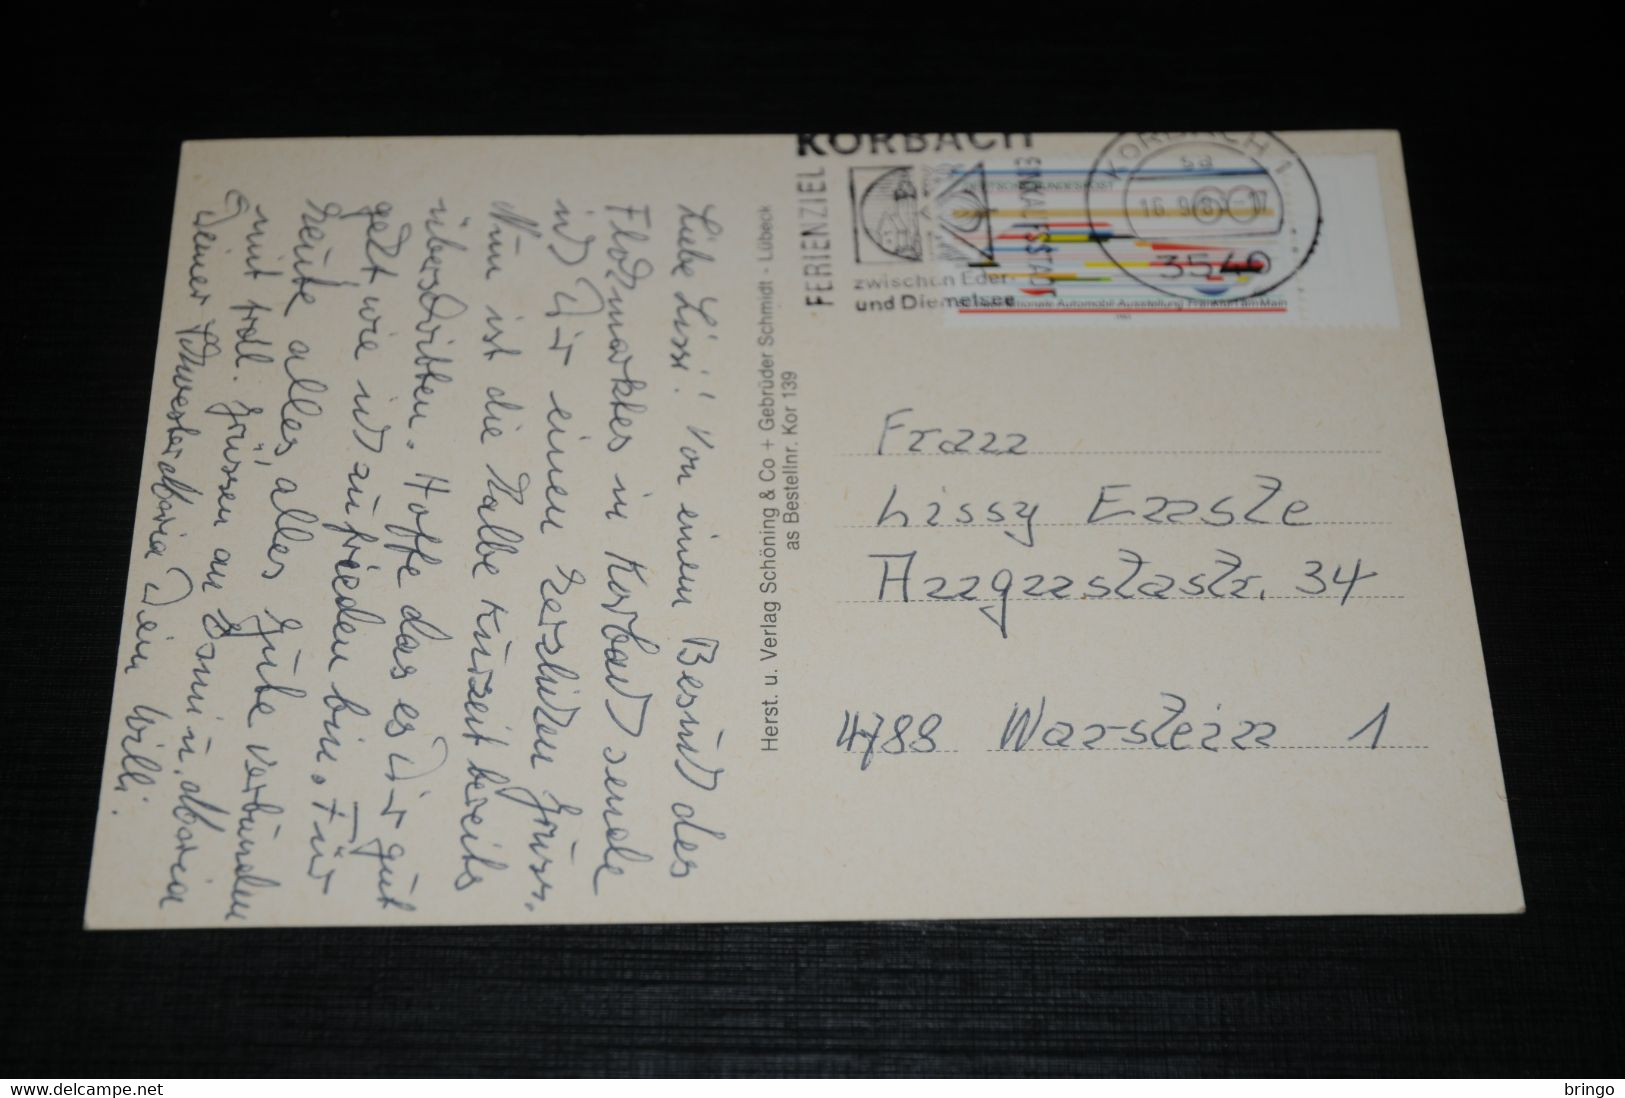 Liebe Lissi! Von einem Besuch des
Flohmarktes in Korbach sende
ich Dir einen herzlichen Gruss.
Nun ist die halbe Kurzeit bereits
überschritten. Hoffe das es Dir gut
geht, wie ich zufrieden bin. Für
heute alles, alles Gute verbunden
mit Grüssen an u. Maria
Deiner Schwester Maria Dein Willi.
Herst. u. Verlag Schöning & Co + Gebrüder Schmidt - Lübeck
as Bestellnr. Kor 139
KORBACH
FERIENZIEL
EINKAUFSSTADT
zwischen Eder-
und Diemelsee
KORBACH 1
16.9.8 -17
3540
DEUTSCHE BUNDESPOST
Internationale Automobil-Ausstellung Frankfurt am Main
Frau
Lissy Enste
Augustastr. 34
4788 Warstein 1
bringo